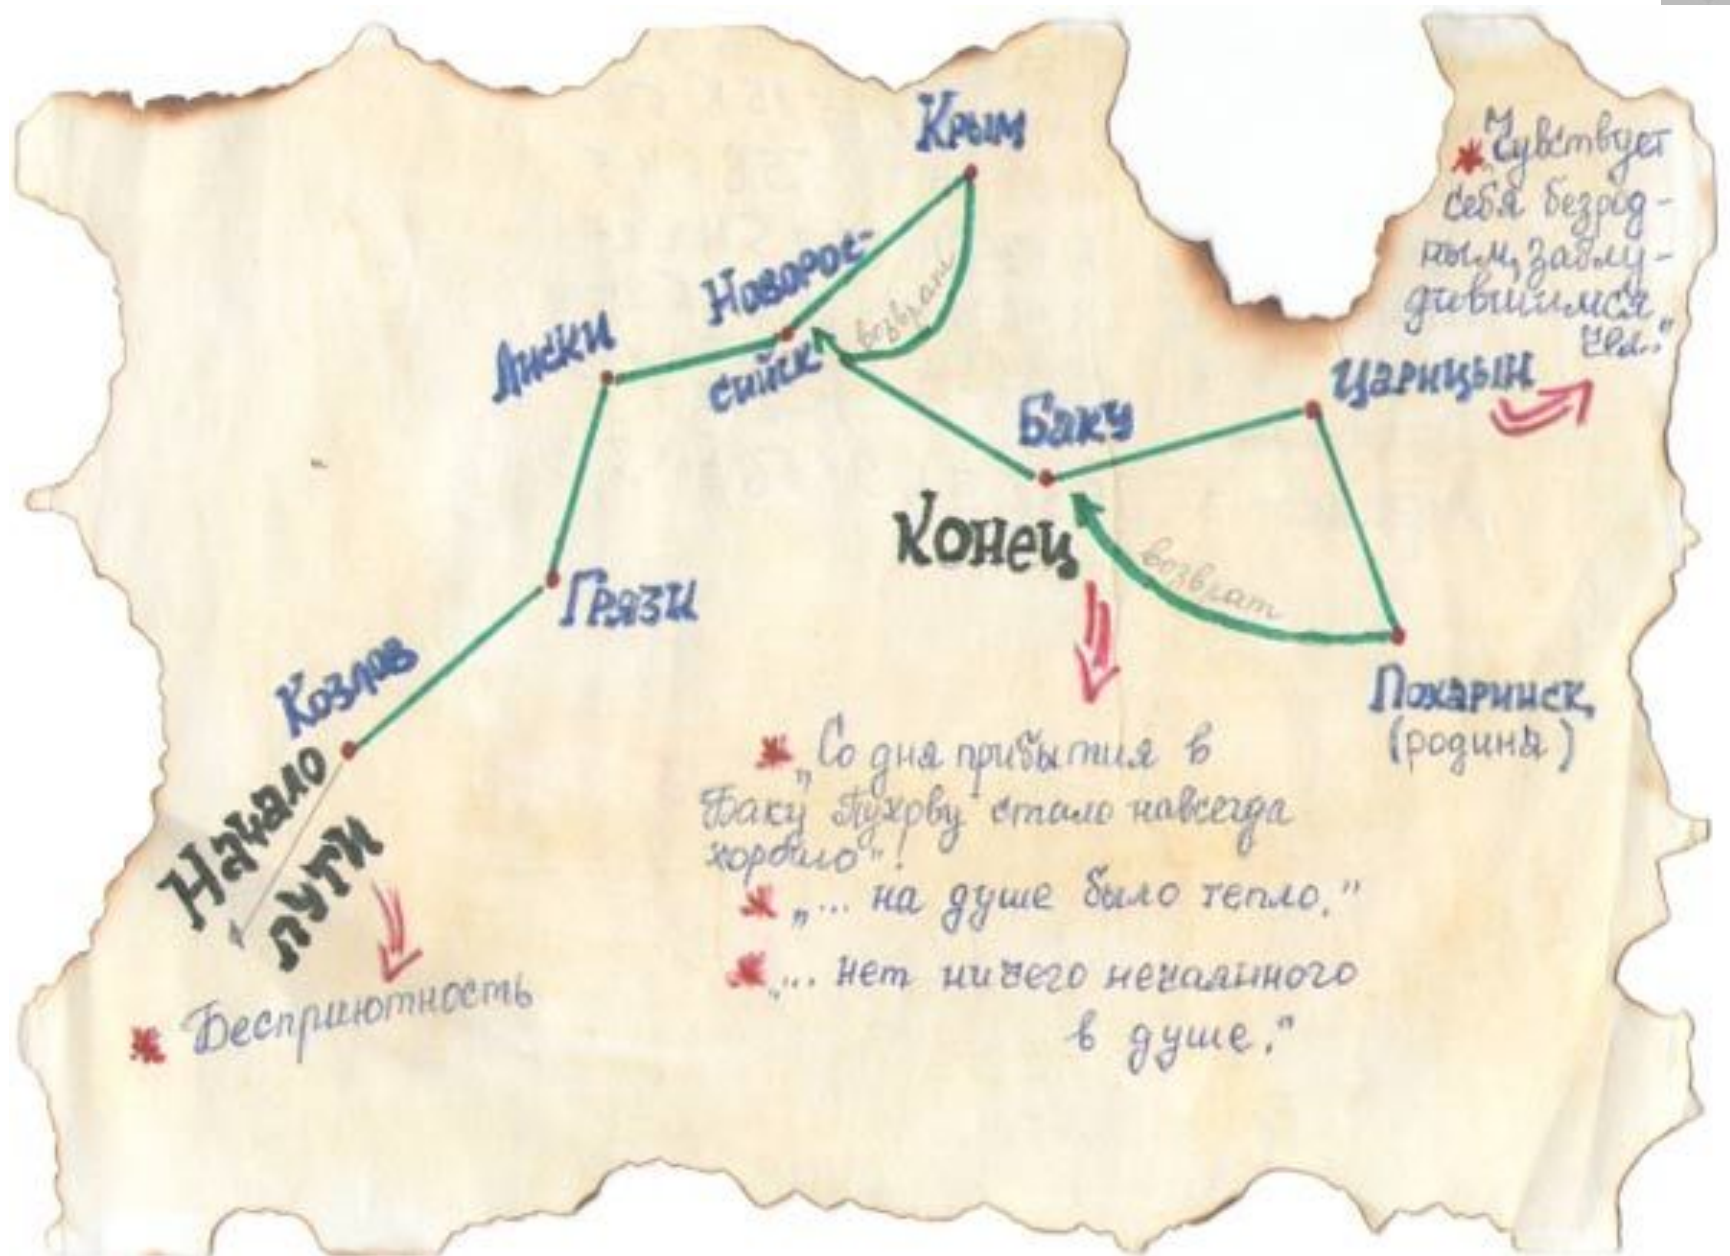 Крым
* „Чувствует
себя безрод-
ным, заблу-
дившимся
Новорос-
сийск
возврат
Лиски
Царицын
Баку
Конец
возврат
Грязи
Козлов
Похаринск
(родина)
Начало
пути
* „Со дня прибытия в
Баку Пухову стало навсегда
хорошо".
* „... на душе было тепло."
* „... нет ничего нечаянного
в душе."
* Бесприютность